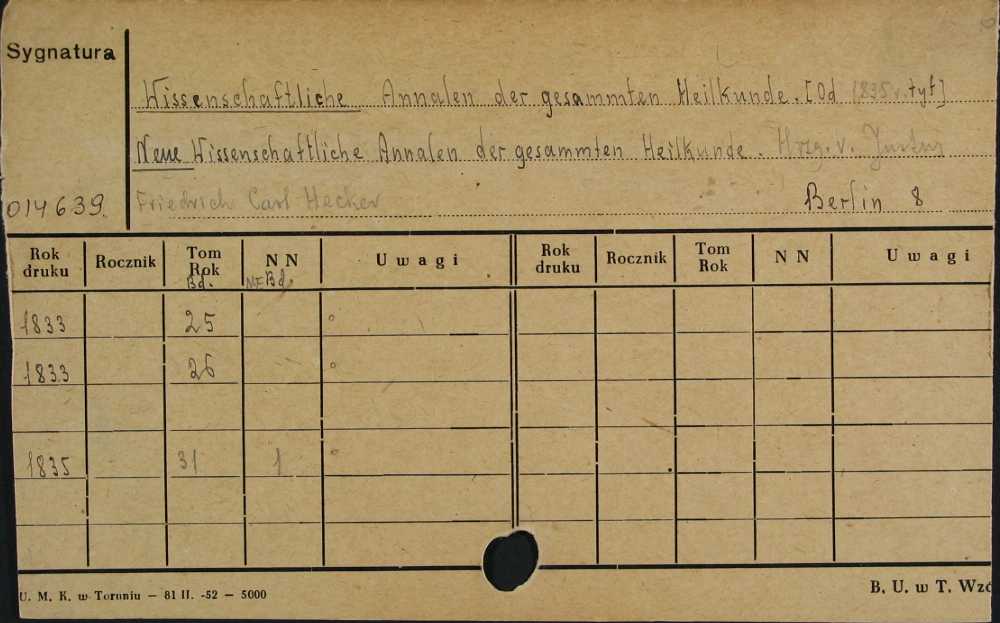 Sygnatura
Wissenschaftliche Annalen der gesammten Heilkunde. [Od 1835 r. tyt]
Neue Wissenschaftliche Annalen der gesammten Heilkunde. Hrsg. v. Justus
014639. Friedrich Carl Hecker Berlin 8
Rok druku Rocznik Tom Rok Bd. NN NF Bd. Uwagi Rok druku Rocznik Tom Rok NN Uwagi
1833 25 °
1833 26 °
1835 31 1 °
U. M. K. w Toruniu — 81 II. -52 — 5000 B. U. w T. Wzó